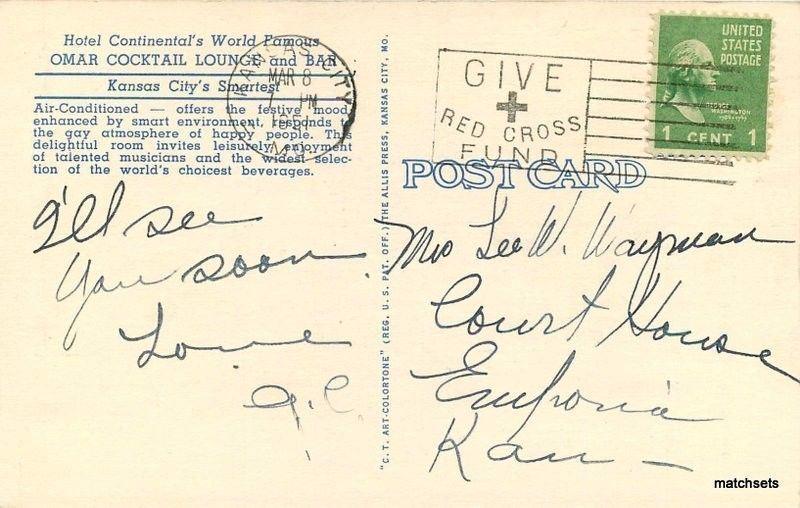 Hotel Continental's World Famous
OMAR COCKTAIL LOUNGE and BAR
Kansas City's Smartest
Air-Conditioned — offers the festive mood,
enhanced by smart environment, responds to
the gay atmosphere of happy people. This
delightful room invites leisurely enjoyment
of talented musicians and the widest selec-
tion of the world's choicest beverages.
KANSAS CITY
MAR 8
7 PM
1951
MO.
GIVE
RED CROSS
FUND
UNITED
STATES
POSTAGE
WASHINGTON
1 CENT 1
POST CARD
"C. T. ART-COLORTONE" (REG. U. S. PAT. OFF.) THE ALLIS PRESS, KANSAS CITY, MO.
I'll see
You soon.
Love
Mrs Lee W. Wayman
Court House
Emporia
Kan —
matchsets